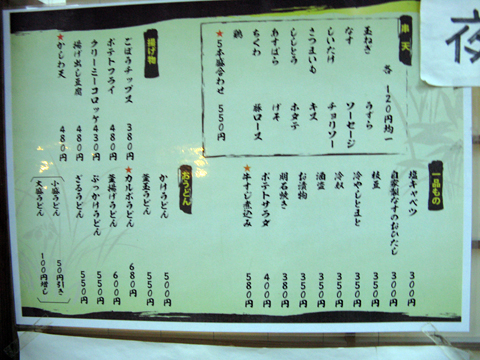 夜
串天
各120円均一
玉ねぎ うずら
なす ソーセージ
しいたけ チョリソー
さつまいも キス
ししとう ホタテ
あすぱら げそ
ちくわ 豚ロース
鶏
★5本盛合わせ 550円
揚げ物
ごぼうチップス 380円
ポテトフライ 480円
クリーミーコロッケ 430円
揚げ出し豆腐 480円
★かしわ天 480円
一品もの
塩キャベツ 300円
自家製なすのおひたし 300円
枝豆 350円
冷やしとまと 350円
冷奴 350円
酒盗 350円
お漬物 350円
明石焼き 380円
ポテトサラダ 400円
★牛すじ煮込み 580円
おうどん
かけうどん 500円
釜玉うどん 550円
★カルボうどん 680円
釜揚げうどん 600円
ぶっかけうどん 550円
ざるうどん 550円
小盛うどん 50円引き
大盛うどん 100円増し